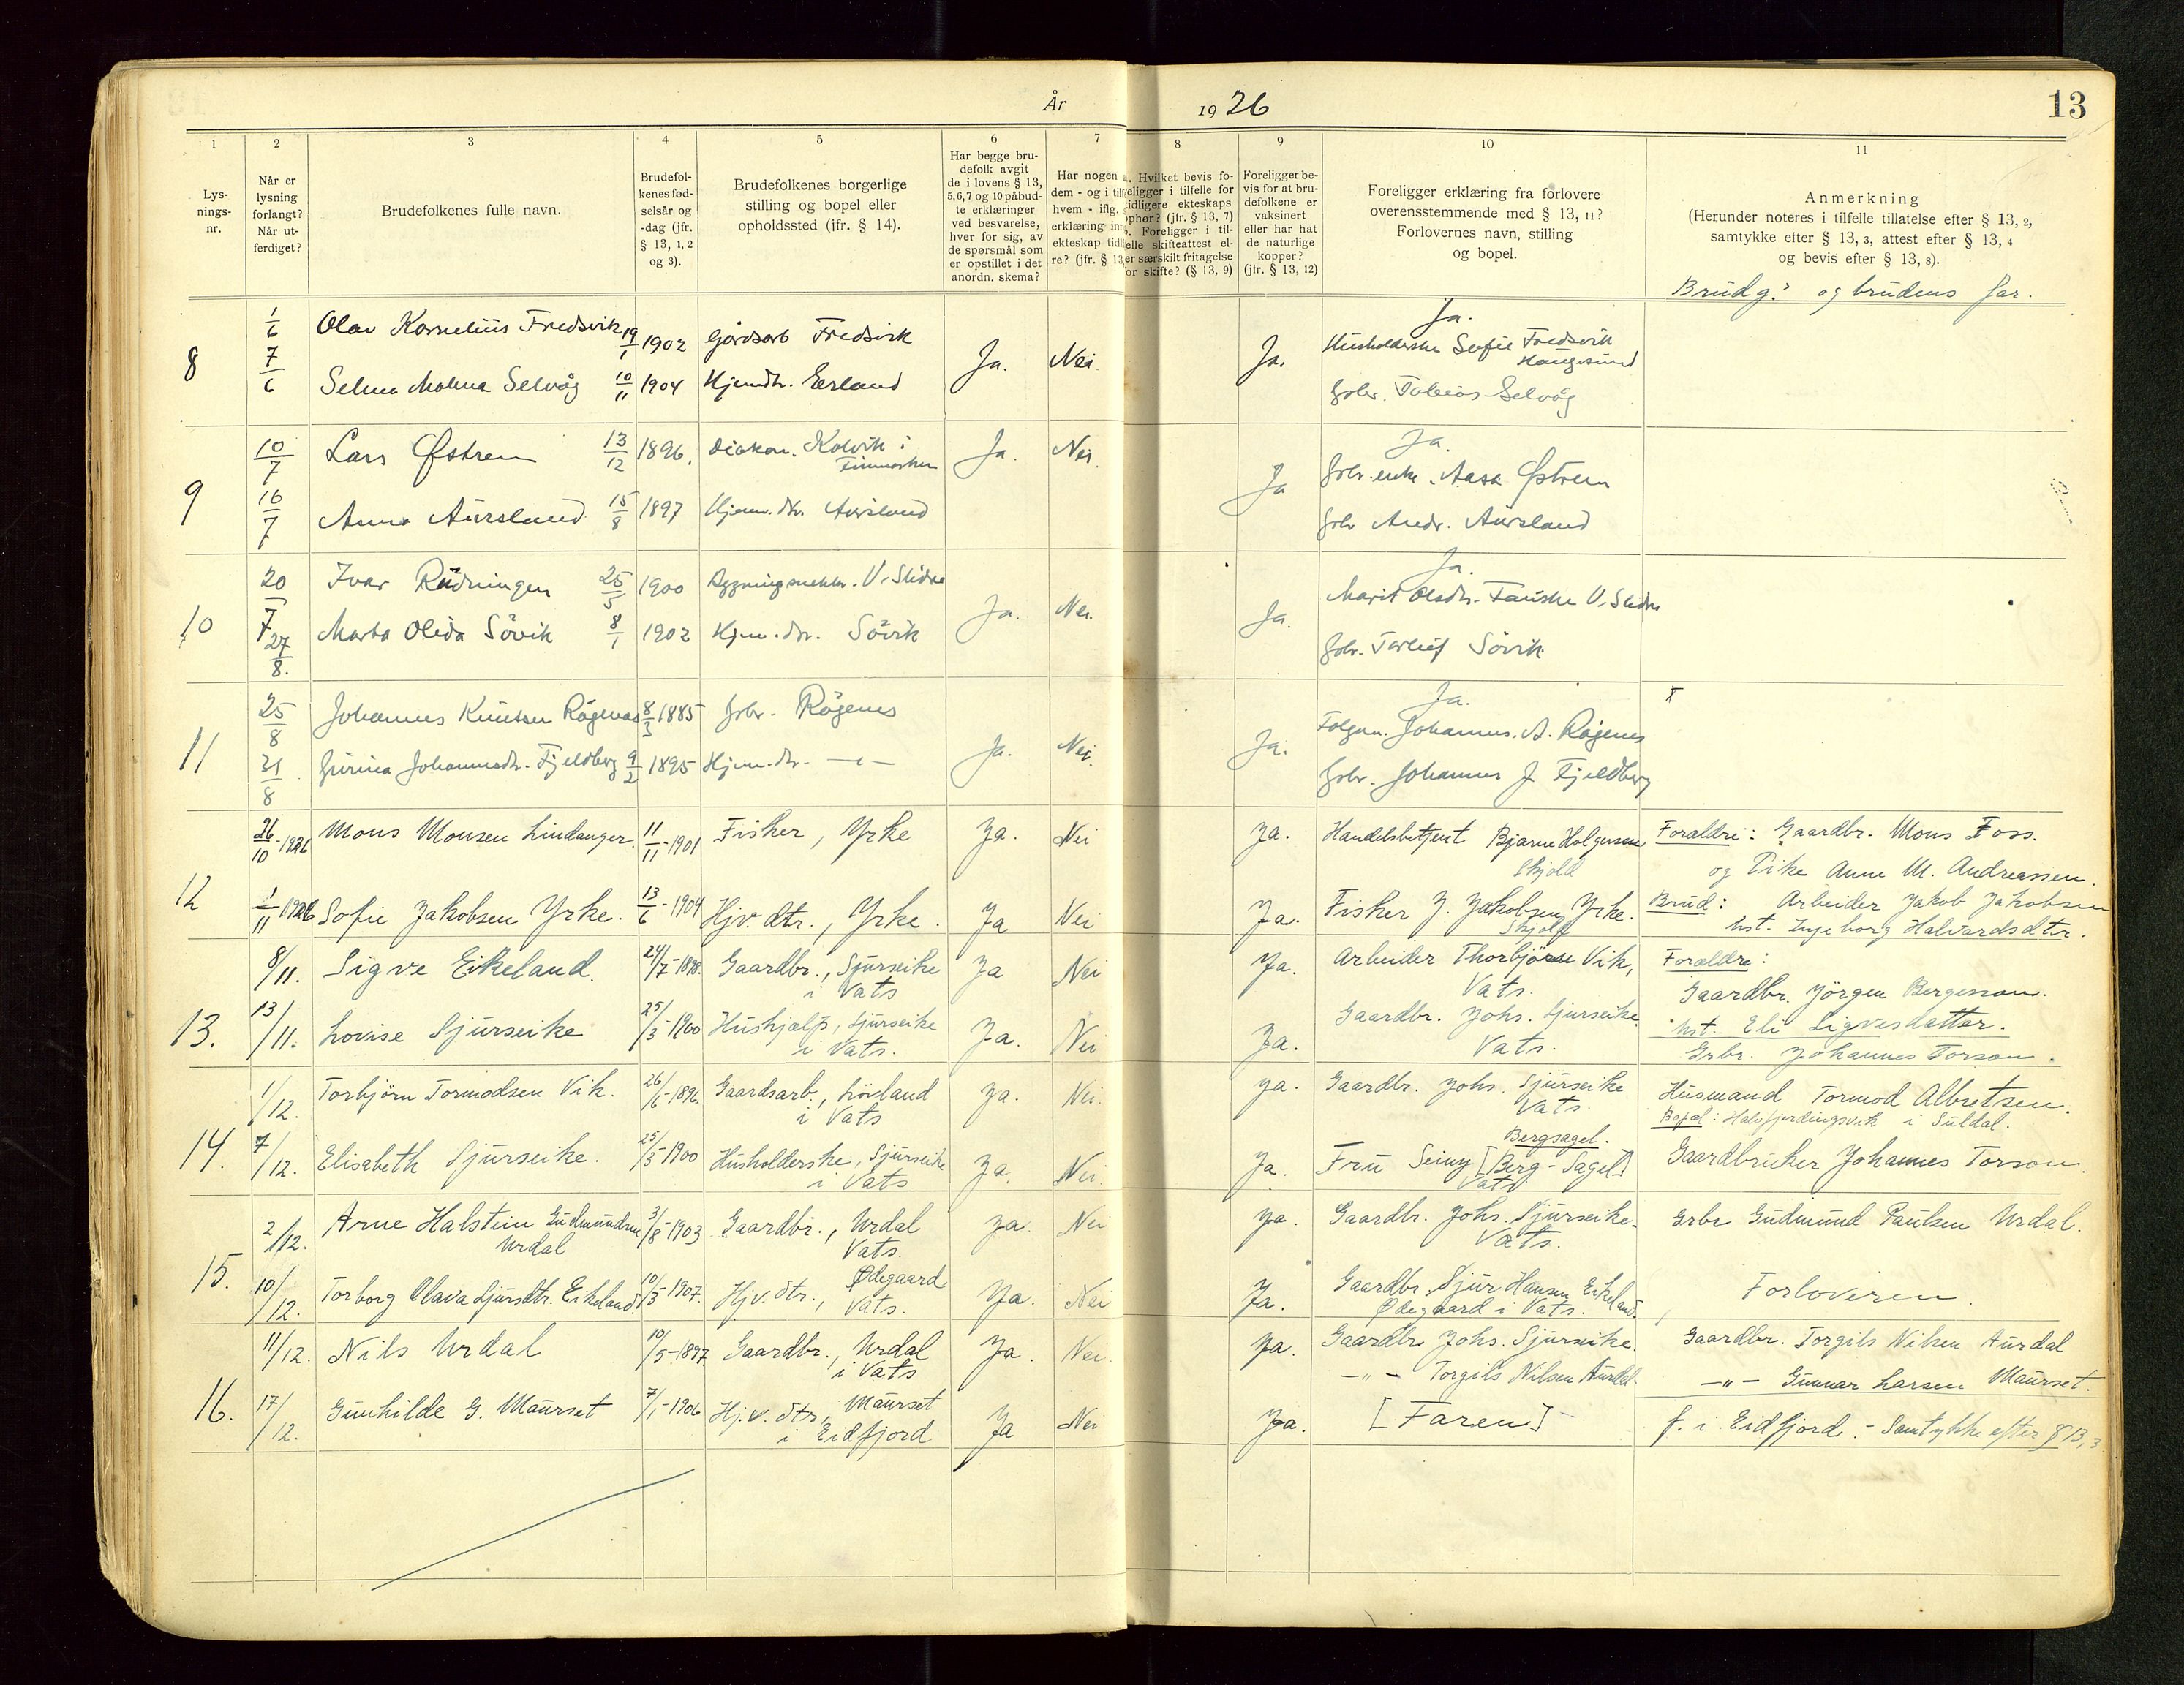 År 1926
13
1 2 3 4 5 6 7 8 9 10 11
Lysnings-nr.
Når er lysning forlangt? Når utferdiget?
Brudefolkenes fulle navn.
Brudefolkenes fødselsår og -dag (jfr. § 13, 1, 2 og 3).
Brudefolkenes borgerlige stilling og bopel eller opholdssted (ifr. § 14).
Har begge brudefolk avgit de i lovens § 13, 5, 6, 7 og 10 påbudte erklæringer ved besvarelse, hver for sig, av de spørsmål som er opstillet i det anordn. skema?
Har nogen dem - og i til hvem - iflg. erklæring inn ekteskap tidli re? (jfr. § 13
a. Hvilket bevis foreligger i tilfelle for tidligere ekteskaps ophør? (jfr. § 13, 7)
b. Foreligger i tilfelle skifteattest eller særskilt fritagelse for skifte? (§ 13, 9)
Foreligger bevis for at brudefolkene er vaksinert eller har hat de naturlige kopper? (jfr. § 13, 12)
Foreligger erklæring fra forlovere overensstemmende med § 13, 11? Forlovernes navn, stilling og bopel.
Anmerkning
(Herunder noteres i tilfelle tillatelse efter § 13, 2, samtykke efter § 13, 3, attest efter § 13, 4 og bevis efter § 13, 8).
Brudg.s og brudens far.
8
1/6 Olav Kornelius Fredsvik 19/1 1902 Gårdsarb Fredsvik Ja. Nei. Ja. Ja.
Husholderske Sofie Fredsvik Haugesund
7/6 Selma Malena Selvåg 10/11 1904 Hjemdtr. Eerland
Gbr. Tobias Selvåg
9
10/7 Lars Østrem 13/12 1896. Diakon. Kolvik i Finmarken Ja. Nei. Ja Ja.
Gbr. enke. Aasa Østrem
16/7 Anna Aursland 15/8 1897 Hjem. dtr. Aursland
Gbr Andr. Aursland
10
20/7 Ivar Rudningen 25/5 1900 V. Slidre Ja. Nei. Ja. Ja.
Marit Olsdtr. Fauske V. Slidre
27/8. Marta Olida Sövik 8/1 1902 Hjem. dtr. Sövik
Gbr. Torleif Sövik
11
25/8 Johannes Knutsen Rögenes 8/3 1885 Gbr. Rögenes Ja. Nei. Ja. Ja.
Johannes. A. Rögenes
31/8 Gurina Johannesdtr. Fjeldberg 9/2 1895 Hjem. dtr. —〃—
Gbr. Johannes J Fjeldberg
12
26/10-1926 Mons Monsen Lindanger. 11/11-1901 Fisker, Yrke Ja. Nei Ja. Handelsbetjent Bjarne Holgersen Skjold
Foraldre: Gaardbr. Mons Foss.
og Pike Anne M. Andreassen.
1/11 1926 Sofie Jakobsen Yrke. 13/6-1904 Hjv. dtr., Yrke. Ja Nei Ja. Fisker J. Jakobsen Yrke. Skjold
Brud: Arbeider Jakob Jakobsen
hst. Ingeborg Halvardsdtr.
13.
8/11. Sigve Eikeland. 24/7-1898. Gaardbr., Sjurseike i Vats Ja Nei Ja. Arbeider Thorbjörn Vik, Vats.
Foraldre:
Gaardbr. Jörgen Bergesson.
hst. Eli Sigvesdatter.
13/11. Lovise Sjurseike 25/3-1900 Hushjalp, Sjurseike i Vats. Ja. Nei Ja. Gaardbr. Johs. Sjurseike Vats.
Grbr. Johannes Torson.
14.
1/12. Torbjörn Tormodsen Vik. 26/6-1896. Gaardsarb., Lövland i Vats Ja. Nei. Ja. Gaardbr. Johs. Sjurseike Vats.
Husmand Tormod Albretsen.
Bopæl: Halvfjerdingsvik i Suldal.
7/12. Elisabeth Sjurseike. 25/3-1900 Husholderske, Sjurseike i Vats Ja. Nei. Ja. Bergsagel. Fru Seiny [Berg-Sagel] Vats
Gaardbruker Johannes Torson.
15.
2/12. Arne Halstein Gudmundsen Urdal 3/8-1903 Gaardbr., Urdal Vats. Ja. Nei Ja. Gaardbr. Johs. Sjurseike. Vats.
Grbr Gudmund Paulsen Urdal.
10/12. Torborg Olava Sjursdtr. Eikeland. 10/5-1907. Hjv. dtr., Ødegaard Vats. Ja. Nei Ja. Gaardbr. Sjur Hansen Eikeland. Ødegaard i Vats.
Forloveren.
16.
11/12. Nils Urdal 10/5-1897 Gaardbr., Urdal i Vats Ja. Nei. Ja. Gaardbr. Johs. Sjurseike.
—〃— Torgils Nilsen Aurdal
Gaardbr. Torgils Nilsen Aurdal
—〃— Gunnar Larsen Maurset.
17/12. Gunhilde G. Maurset 7/1-1906 Hj. v. dtr, Maurset i Eidfjord Ja Nei Ja. [Faren]
f. i Eidfjord. - Samtykke efter § 13, 3